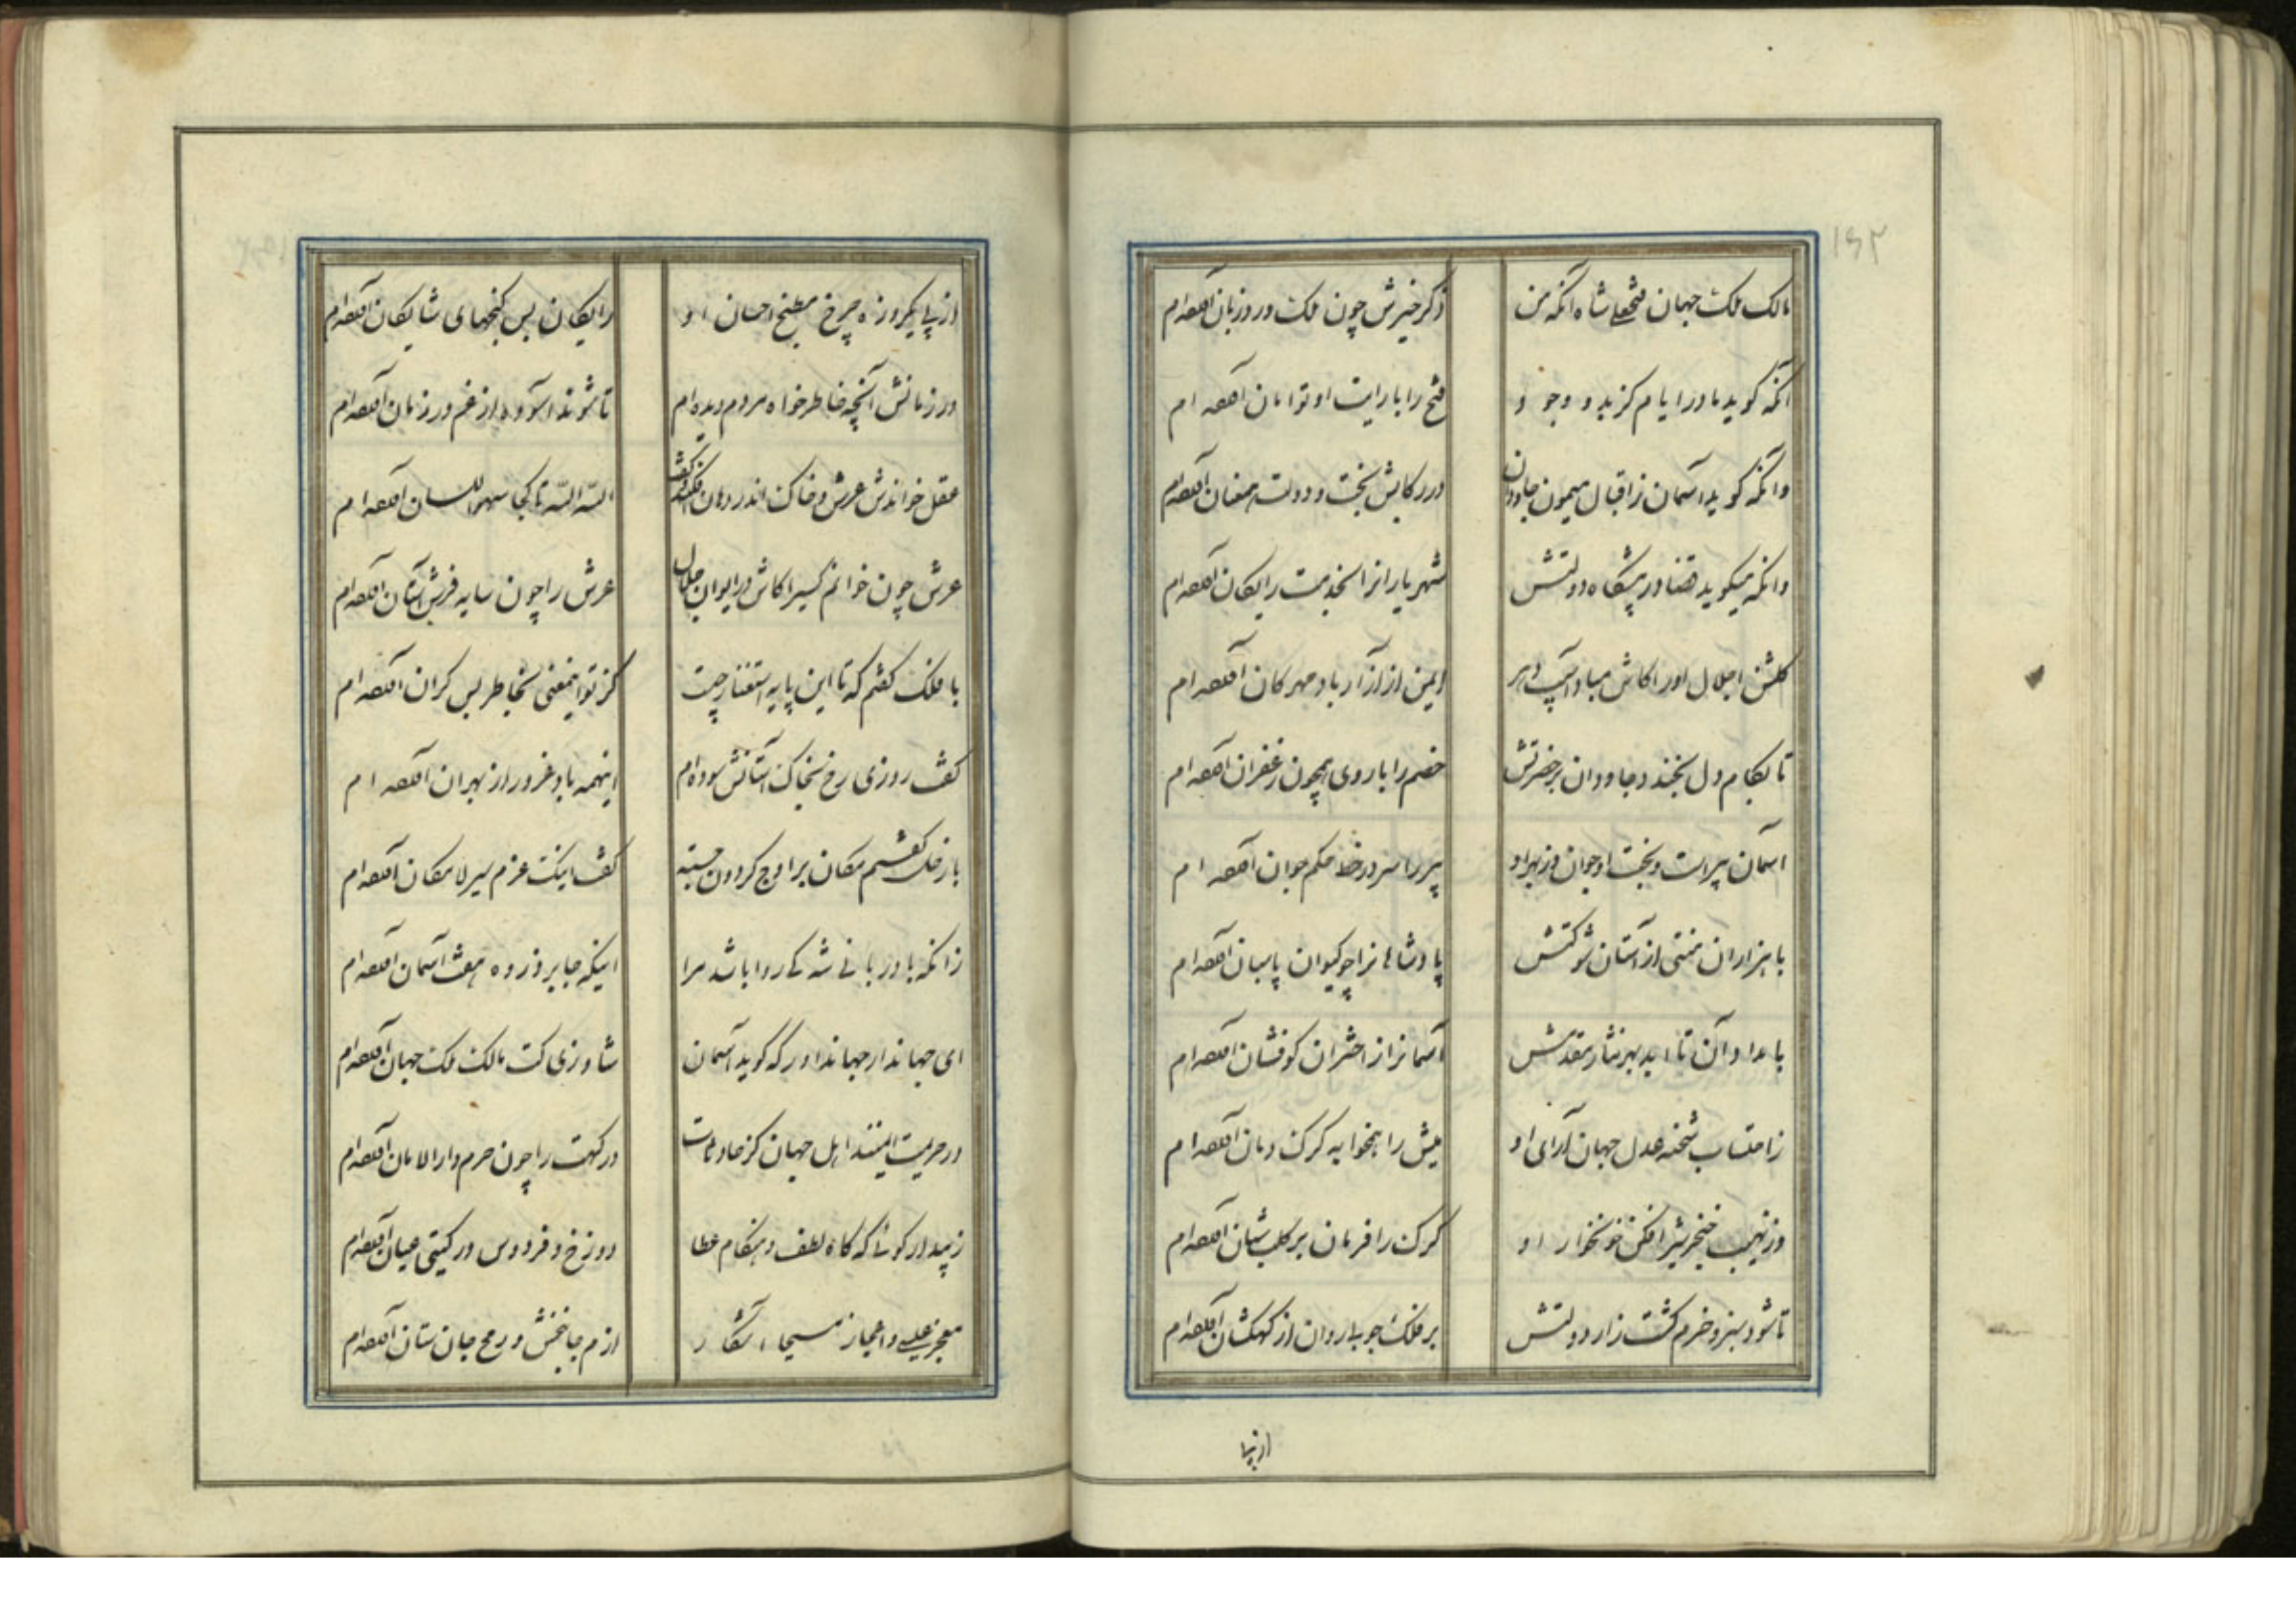 ۱۶۲
مالک ملک جهان فتحعلی شاه آنکه من ذکر خیرش چون ملک ورد زبان آورده‌ام
آنکه گوید مادر ایام کز بدو وجود فتح را با رایت او توامان آورده‌ام
وانکه گوید آسمان ز اقبال میمون جاودان در رکابش بخت و دولت همعنان آورده‌ام
وانکه میگوید قضا در پیشگاه دولتش شهریارانرا بخدمت رایگان آورده‌ام
گلشن اجلال اورا کاش مباد آسیب دهر ایمن از آزار باد مهرکان آورده‌ام
تا بکام دل بخندد جاودان بر حضرتش خصم را با روی همچون زعفران آورده‌ام
آسمان پیر است و بخت او جوان وز بهر او پیر را سر در خط حکم جوان آورده‌ام
با هزاران منتی از آستان شوکتش پادشاهانرا چو کیوان پاسبان آورده‌ام
بامدادان تا ابد بهر نثار مقدمش آسمانرا از اختران کوفشان آورده‌ام
ز احتساب شحنه عدل جهان آرای او میش را همخوابه گرگ دمان آورده‌ام
وز نهیب خنجر شیر افکن خونخوار او گرگ را فرمان بر کلب شبان آورده‌ام
تا شود سبز و خرم کشت زار دولتش بر فلک جوی روان از کهکشان آورده‌ام
از پی یکروزه چرخ مطبخ احسان او رایکان بس گنجهای شایکان آورده‌ام
در زمانش آنچه خاطر خواه مردم دیده‌ام تا شوند آسوده از غم در زمان آورده‌ام
عقل خواندش عرش و خاک اندر دهان افکند و گفت الله الله تا کجا سهو اللسان آورده‌ام
عرش چون خوانم کسیرا کاش در ایوان جلال عرش را چون سایه فرش آستان آورده‌ام
با فلک گفتم که تا این پایه استغنا ز چیست کز تو اینمعنی بخاطر بس گران آورده‌ام
گفت روزی رخ بخاک آستانش سوده‌ام اینهمه باد غرور از بهر آن آورده‌ام
باز فلک گفتم مکان بر اوج گردون جسته گفت اینک عزم سیر لامکان آورده‌ام
زانکه با دربانی شه کی روا باشد مرا اینکه جا بر ذروه هفت آسمان آورده‌ام
ای جهاندار جهانداور که گوید آسمان شاد زی کت مالک ملک جهان آورده‌ام
در حریمت ایمنند اهل جهان کز حادثات درگهت را چون حرم دار الامان آورده‌ام
زیبد ار گوئی که گاه لطف و هنگام عطا دوزخ و فردوس در گیتی عیان آورده‌ام
معجز عیسی و اعجاز مسیحا آشکار از دم جانبخش و رمح جان ستان آورده‌ام
از پی